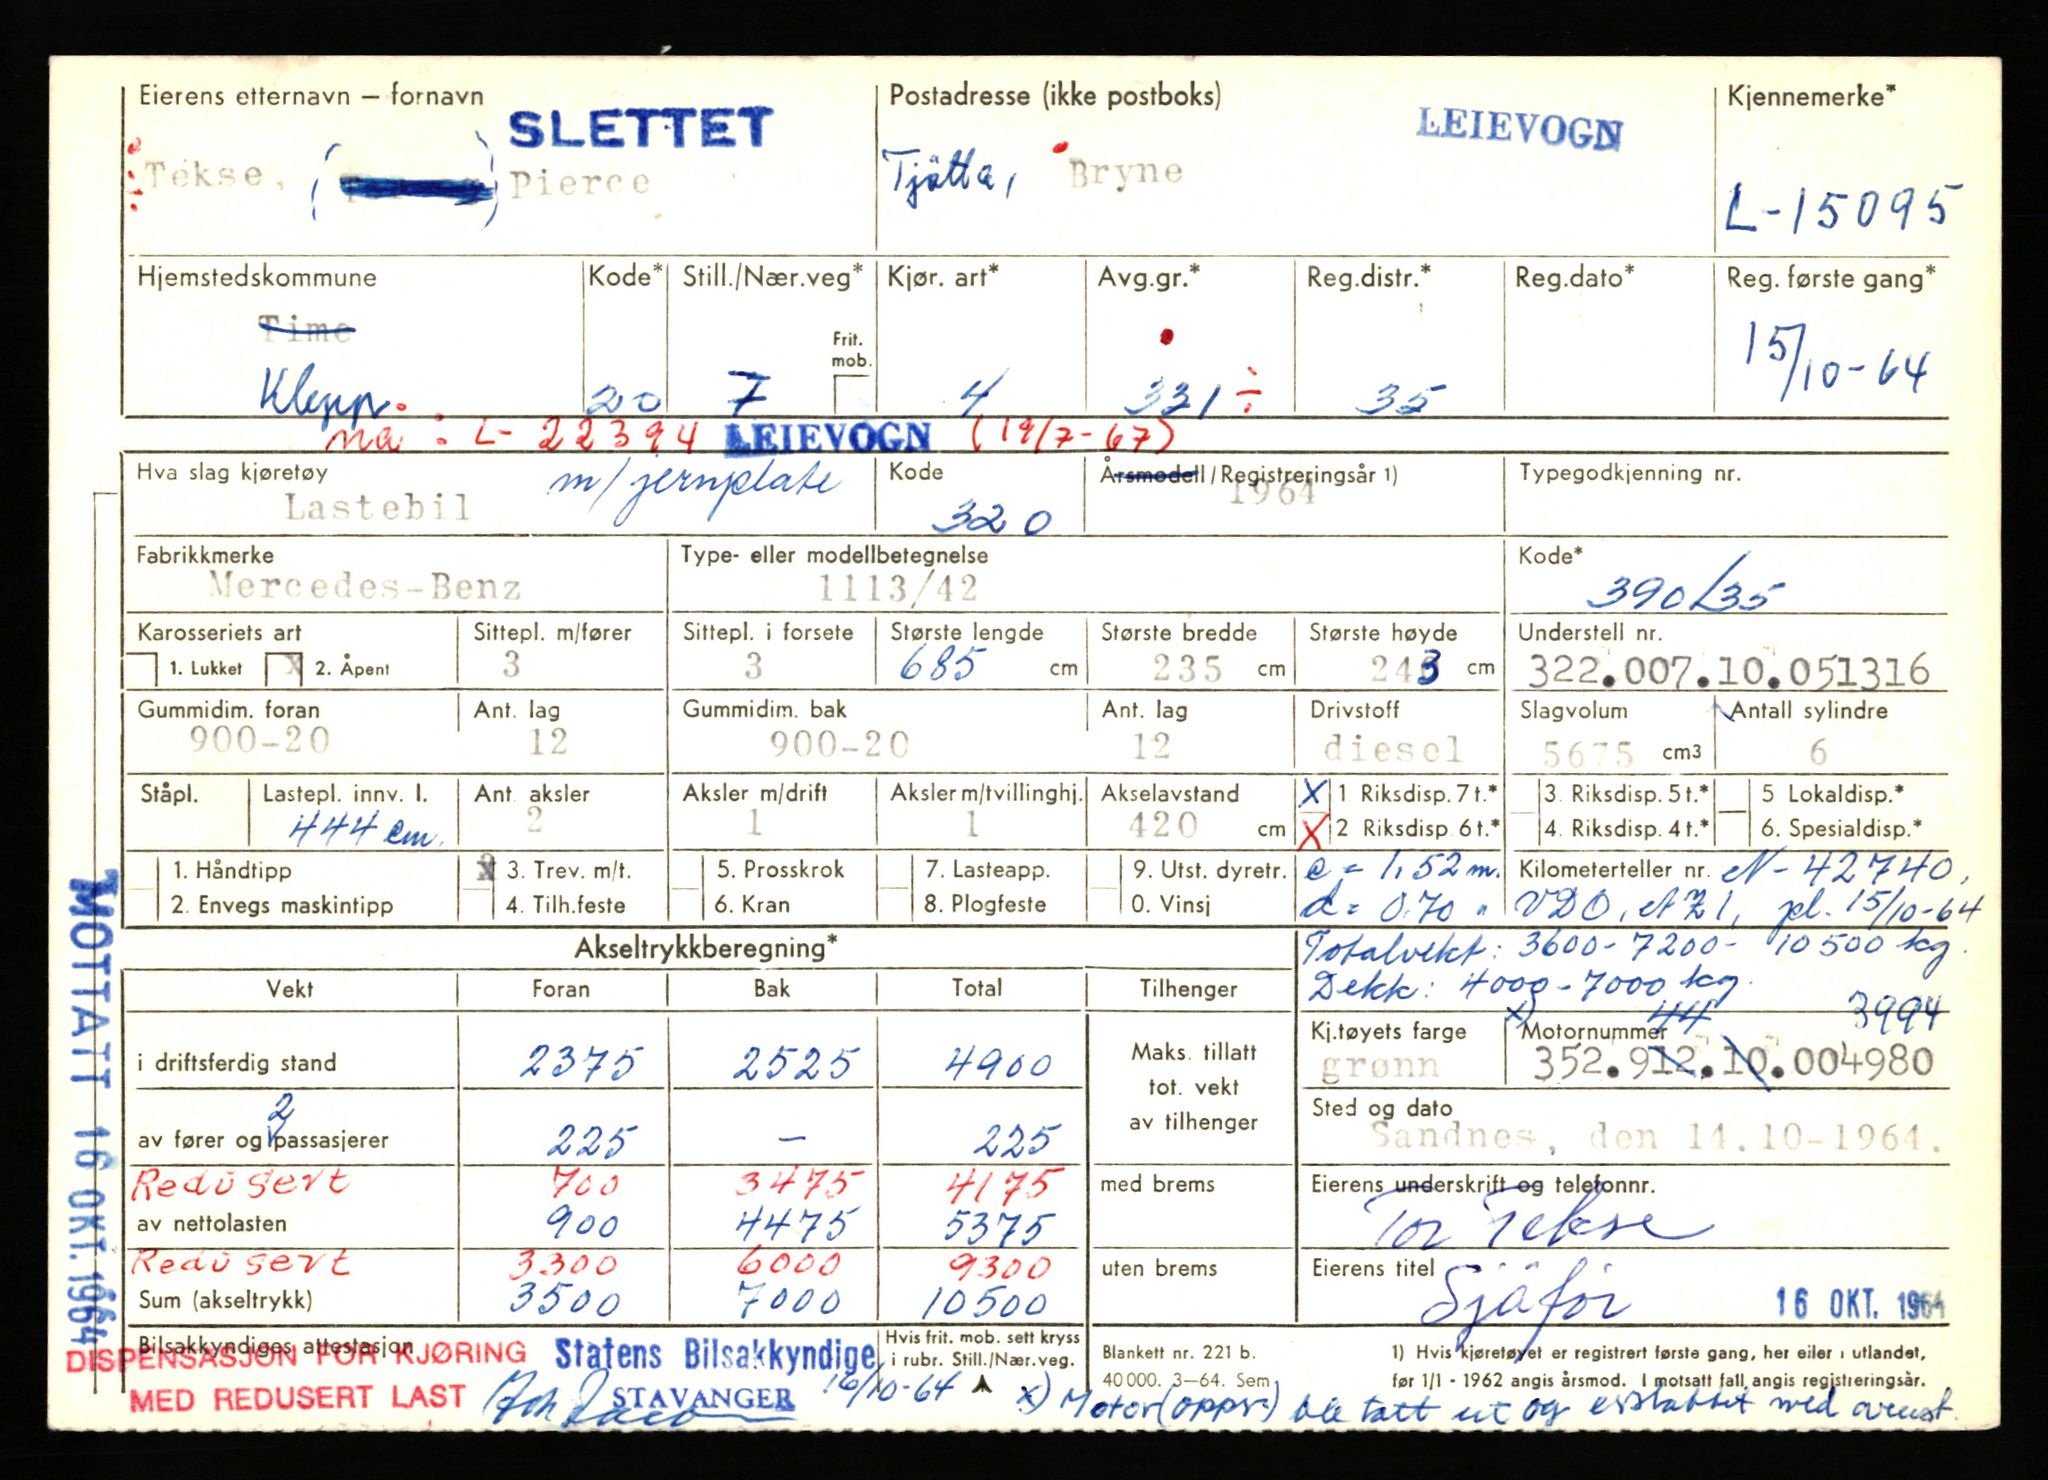 Eierens etternavn – fornavn
SLETTET
Postadresse (ikke postboks)
LEIEVOGN
Kjennemerke*
Tekse, ( ) Pierce
Tjåtta, Bryne
L-15095
Hjemstedskommune
Kode*
Still./Nær.veg*
Kjør. art*
Avg.gr.*
Reg.distr.*
Reg.dato*
Reg. første gang*
Time
Frit. mob.
15/10-64
Klepp.
20
7
4
331 ÷
35
na: L- 22394 LEIEVOGN (19/7-67)
Hva slag kjøretøy
m/jernplate
Kode
Årsmodell/Registreringsår 1)
Typegodkjenning nr.
Lastebil
320
1964
Fabrikkmerke
Type- eller modellbetegnelse
Kode*
Mercedes-Benz
1113/42
390/35
Karosseriets art
Sittepl. m/fører
Sittepl. i forsete
Største lengde
Største bredde
Største høyde
Understell nr.
1. Lukket
x 2. Åpent
3
3
685 cm
235 cm
243 cm
322.007.10.051316
Gummidim. foran
Ant. lag
Gummidim. bak
Ant. lag
Drivstoff
Slagvolum
Antall sylindre
900-20
12
900-20
12
diesel
5675 cm3
6
Ståpl.
Lastepl. innv. l.
Ant. aksler
Aksler m/drift
Aksler m/tvillinghj.
Akselavstand
X 1 Riksdisp. 7 t.*
3. Riksdisp. 5 t.*
5 Lokaldisp.*
444 cm.
2
1
1
420 cm
X 2 Riksdisp. 6 t.*
4. Riksdisp. 4 t.*
6. Spesialdisp.*
1. Håndtipp
x 3. Trev. m/t.
5. Prosskrok
7. Lasteapp.
9. Utst. dyretr.
c = 1,52 m.
Kilometerteller nr. N-42740,
2. Envegs maskintipp
4. Tilh.feste
6. Kran
8. Plogfeste
0. Vinsj
d = 0,70 "
VDO, pl. 15/10-64
Akseltrykkberegning*
Totalvekt: 3600-7200- 10500 kg.
Dekk: 4000-7000 kg.
Vekt
Foran
Bak
Total
Tilhenger
x)
44
3994
Kj.tøyets farge
Motornummer
i driftsferdig stand
2375
2525
4900
Maks. tillatt tot. vekt av tilhenger
grønn
352.912.10.004980
Sted og dato
av fører og 2 passasjerer
225
–
225
Sandnes, den 14.10-1964.
Redusert
700
3475
4175
med brems
Eierens underskrift og telefonnr.
av nettolasten
900
4475
5375
Tor Tekse
Redusert
3300
6000
9300
uten brems
Eierens titel
Sum (akseltrykk)
3500
7000
10500
Sjåfør
16 OKT. 1964
MOTTATT 16 OKT. 1964
Bilsakkyndiges attestasjon
DISPENSASJON FOR KJØRING
MED REDUSERT LAST
Statens Bilsakkyndige,
STAVANGER
16/10-64
Hvis frit. mob. sett kryss
i rubr. Still./Nær.veg.
Blankett nr. 221 b.
40 000. 3–64. Sem
1) Hvis kjøretøyet er registrert første gang, her eller i utlandet,
før 1/1 - 1962 angis årsmod. I motsatt fall angis registreringsår.
x) Motor(oppr.) ble tatt ut og erstattet med ovenst.